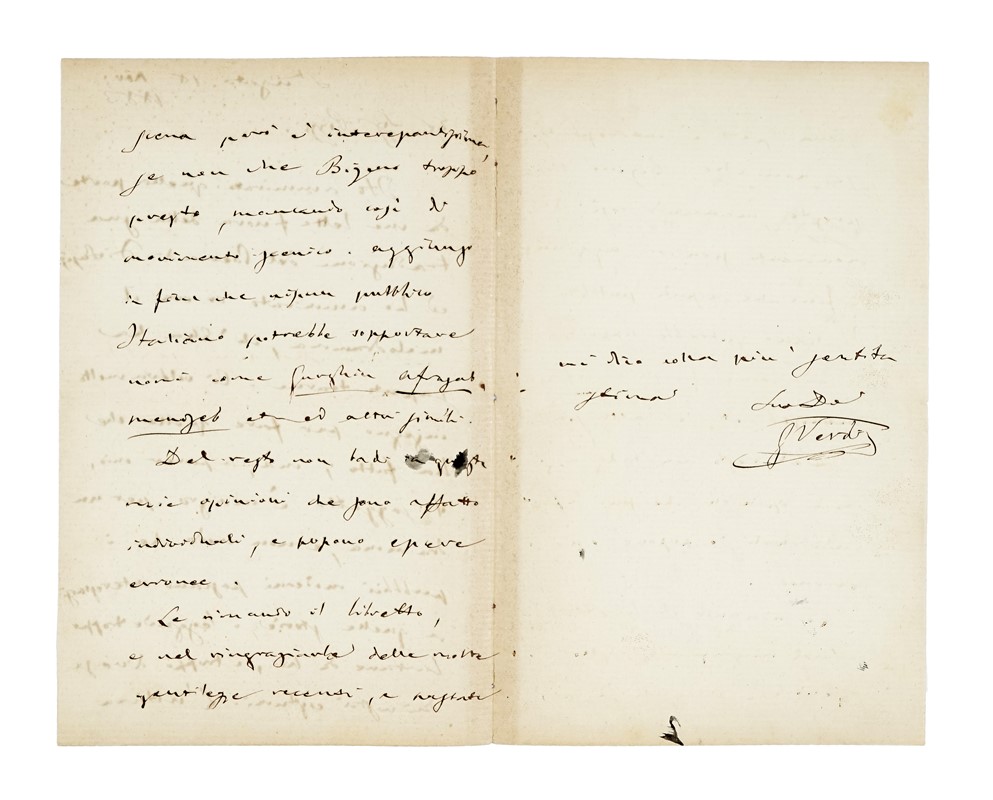 scena però è interessantissima,
se non che                troppo
presto, mancando così di
movimento scenico. Aggiungo
in fine che nissun pubblico
Italiano potrebbe sopportare
nomi come
etc ed altri simili.
Del resto non badi
mie opinioni che sono affatto
individuali, e possono essere
erronee.
Le rimando il libretto,
e nel ringraziarla delle molte
gentilezze                , e
mi dico colla più gentita
stima
Suo Dev
G Verdi